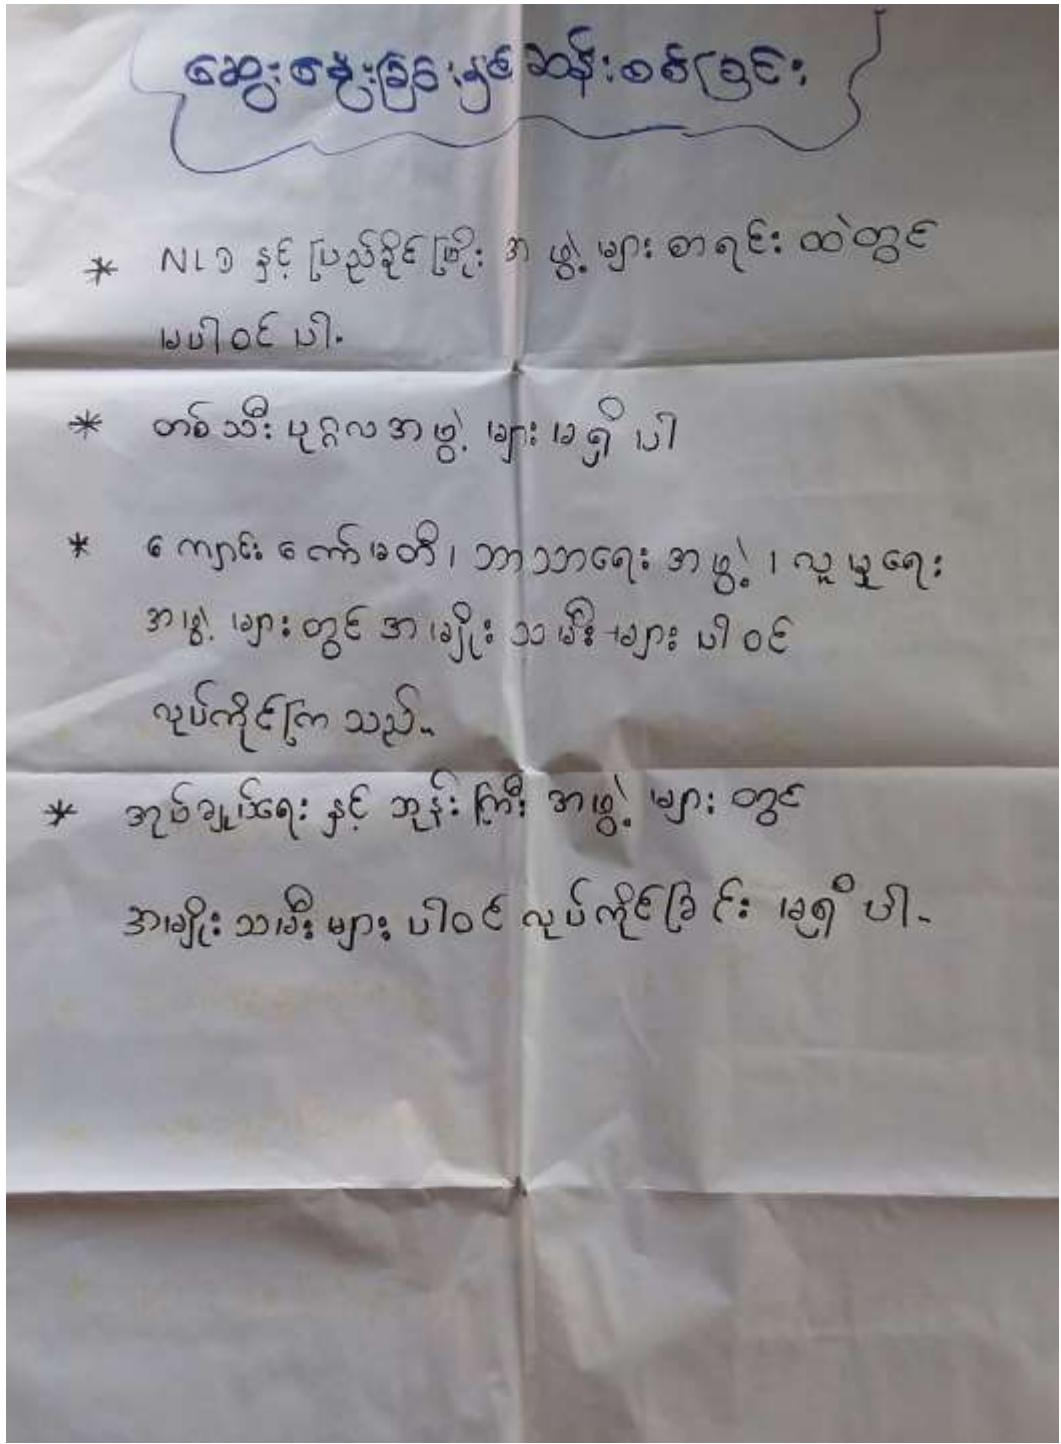 ဆွေးနွေးခြင်းနှင့်ဆန်းစစ်ခြင်း
* NLD နှင့် ပြည်ခိုင်ဖြိုး အဖွဲ့များ စာရင်းထဲတွင်
မပါဝင်ပါ။
* တစ်သီးပုဂ္ဂလအဖွဲ့များ မရှိပါ
* ကျောင်းကော်မတီ၊ ဘာသာရေးအဖွဲ့၊ လူမှုရေး
အဖွဲ့များတွင် အမျိုးသမီးများပါဝင်
လုပ်ကိုင်ကြသည်။
* အုပ်ချုပ်ရေးနှင့် ဘုန်းကြီးအဖွဲ့များတွင်
အမျိုးသမီးများ ပါဝင်လုပ်ကိုင်ခြင်း မရှိပါ။